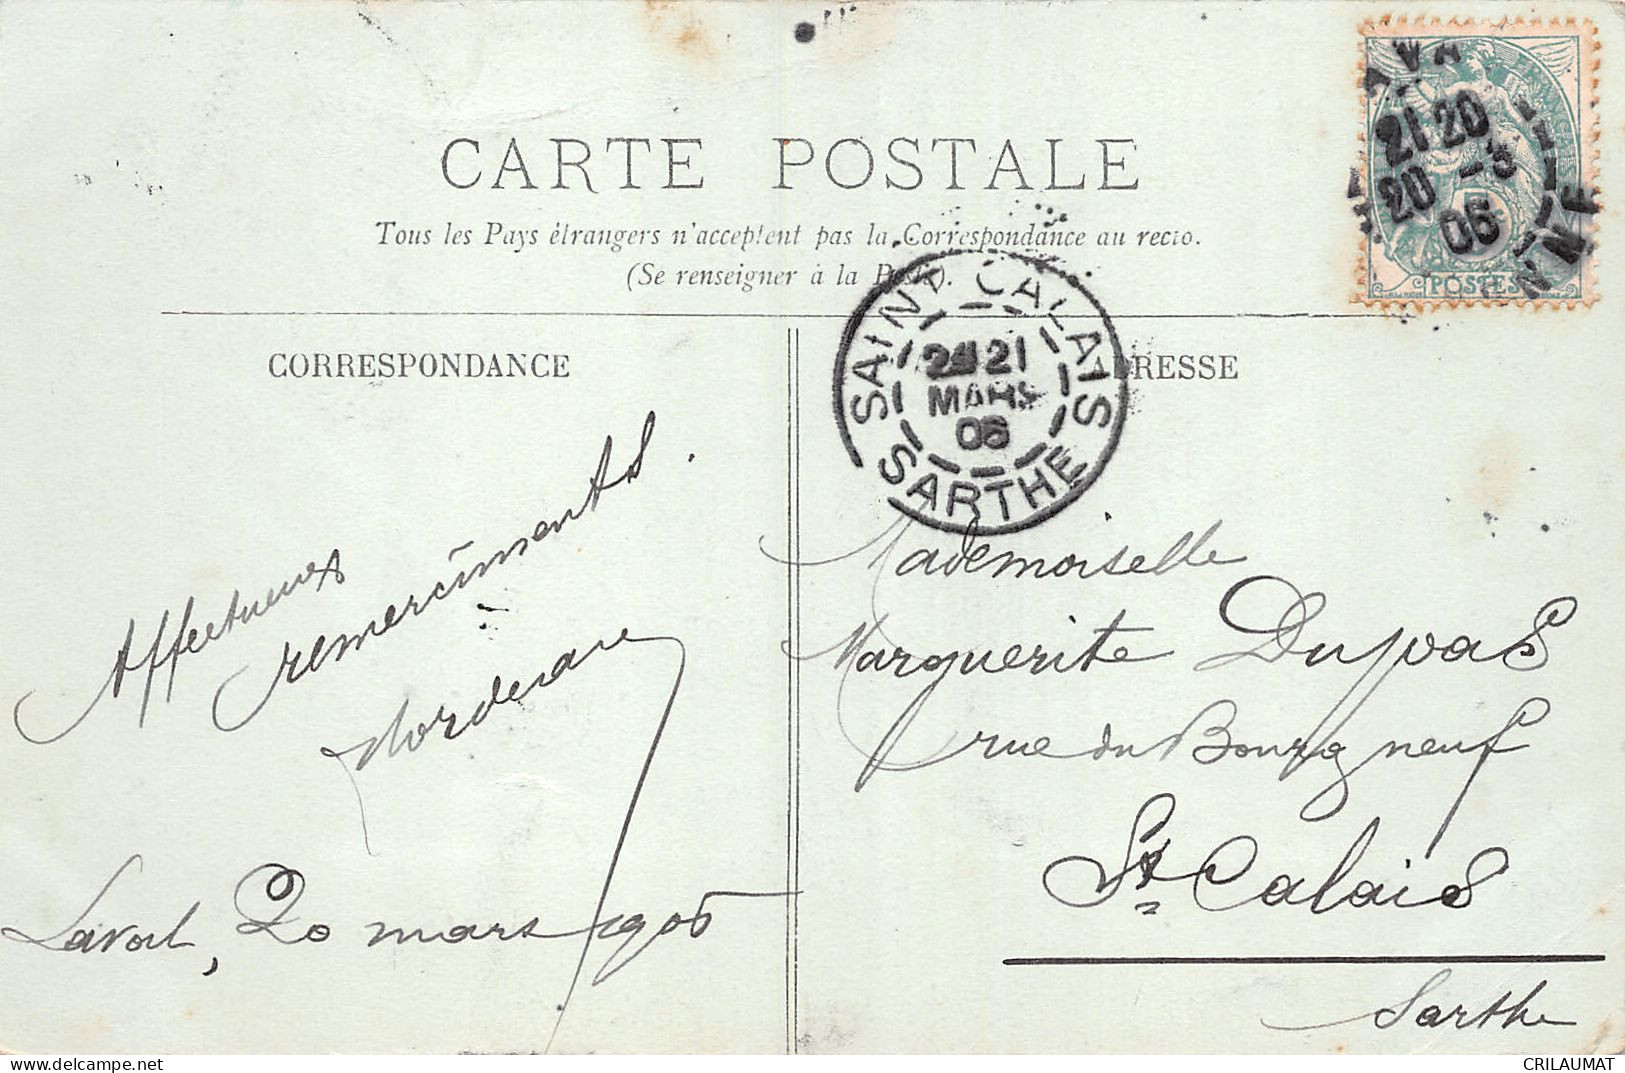 CARTE POSTALE
Tous les Pays étrangers n'acceptent pas la Correspondance au recto.
(Se renseigner à la Poste).
CORRESPONDANCE
ADRESSE
21 20
20 -3
06
POSTES
SAINT CALAIS
21
MARS
06
SARTHE
Affectueux
remercîments.
Laval, 20 mars 1906
Mademoiselle
Marguerite
rue du Bourg neuf
St Calais
Sarthe
delcampe.net
CRILAUMAT